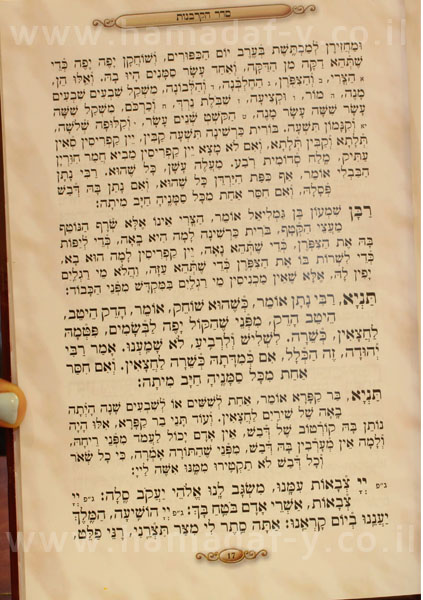 סדר הקרבנות
www.hamadaf-y.co.il
וּמַחֲזִירָן לְמַכְתֶּשֶׁת בְּעֶרֶב יוֹם הַכִּפּוּרִים, וְשׁוֹחֲקָן יָפֶה יָפֶה כְּדֵי
שֶׁתְּהֵא דַקָּה מִן הַדַּקָּה, וְאַחַד עָשָׂר סַמָּנִים הָיוּ בָהּ. וְאֵלּוּ הֵן,
א הַצֳּרִי, ב וְהַצִּפֹּרֶן, ג הַחֶלְבְּנָה, ד וְהַלְּבוֹנָה, מִשְׁקַל שִׁבְעִים שִׁבְעִים
מָנֶה, ה מוֹר, ו וּקְצִיעָה, ז שִׁבֹּלֶת נֵרְדְּ, ח וְכַרְכֹּם, מִשְׁקַל שִׁשָּׁה
עָשָׂר שִׁשָּׁה עָשָׂר מָנֶה, ט הַקֹּשְׁטְ שְׁנֵים עָשָׂר, י וְקִלּוּפָה שְׁלֹשָׁה,
יא וְקִנָּמוֹן תִּשְׁעָה. בּוֹרִית כַּרְשִׁינָה תִּשְׁעָה קַבִּין, יֵין קַפְרִיסִין סְאִין
תְּלָתָא וְקַבִּין תְּלָתָא, וְאִם לֹא מָצָא יֵין קַפְרִיסִין מֵבִיא חֲמַר חִוַּרְיָן
עַתִּיק, מֶלַח סְדוֹמִית רֹבַע. מַעֲלֶה עָשָׁן, כָּל שֶׁהוּא. רַבִּי נָתָן
הַבַּבְלִי אוֹמֵר, אַף כִּפַּת הַיַּרְדֵּן כָּל שֶׁהוּא, וְאִם נָתַן בָּהּ דְּבַשׁ
פְּסָלָהּ, וְאִם חִסַּר אַחַת מִכָּל סַמָּנֶיהָ חַיָּב מִיתָה:
רַבָּן שִׁמְעוֹן בֶּן גַּמְלִיאֵל אוֹמֵר, הַצֳּרִי אֵינוֹ אֶלָּא שְׂרָף הַנּוֹטֵף
מֵעֲצֵי הַקְּטָף, בֹּרִית כַּרְשִׁינָה לְמָה הִיא בָאָה, כְּדֵי לְיַפּוֹת
בָּהּ אֶת הַצִּפֹּרֶן, כְּדֵי שֶׁתְּהֵא נָאָה, יֵין קַפְרִיסִין לְמָה הוּא בָא,
כְּדֵי לִשְׁרוֹת בּוֹ אֶת הַצִּפֹּרֶן כְּדֵי שֶׁתְּהֵא עַזָּה, וַהֲלֹא מֵי רַגְלַיִם
יָפִין לָהּ, אֶלָּא שֶׁאֵין מַכְנִיסִין מֵי רַגְלַיִם בַּמִּקְדָּשׁ מִפְּנֵי הַכָּבוֹד:
תַּנְיָא, רַבִּי נָתָן אוֹמֵר, כְּשֶׁהוּא שׁוֹחֵק, אוֹמֵר, הָדֵק הֵיטֵב,
הֵיטֵב הָדֵק, מִפְּנֵי שֶׁהַקּוֹל יָפֶה לַבְּשָׂמִים, פִּטְּמָהּ
לַחֲצָאִין, כְּשֵׁרָה. לִשְׁלִישׁ וְלִרְבִיעַ, לֹא שָׁמַעְנוּ. אָמַר רַבִּי
יְהוּדָה, זֶה הַכְּלָל, אִם כְּמִדָּתָהּ כְּשֵׁרָה לַחֲצָאִין. וְאִם חִסַּר
אַחַת מִכָּל סַמָּנֶיהָ חַיָּב מִיתָה:
תַּנְיָא, בַּר קַפָּרָא אוֹמֵר, אַחַת לְשִׁשִּׁים אוֹ לְשִׁבְעִים שָׁנָה הָיְתָה
בָאָה שֶׁל שִׁירַיִם לַחֲצָאִין. וְעוֹד תָּנֵי בַּר קַפָּרָא, אִלּוּ הָיָה
נוֹתֵן בָּהּ קוֹרְטוֹב שֶׁל דְּבַשׁ, אֵין אָדָם יָכוֹל לַעֲמֹד מִפְּנֵי רֵיחָהּ,
וְלָמָה אֵין מְעָרְבִין בָּהּ דְּבַשׁ, מִפְּנֵי שֶׁהַתּוֹרָה אָמְרָה, כִּי כָל שְׂאֹר
וְכָל דְּבַשׁ לֹא תַקְטִירוּ מִמֶּנּוּ אִשֶּׁה לַייָ:
ג״פ יְיָ צְבָאוֹת עִמָּנוּ, מִשְׂגָּב לָנוּ אֱלֹהֵי יַעֲקֹב סֶלָה: ג״פ יְיָ
צְבָאוֹת, אַשְׁרֵי אָדָם בֹּטֵחַ בָּךְ: ג״פ יְיָ הוֹשִׁיעָה, הַמֶּלֶךְ
יַעֲנֵנוּ בְיוֹם קָרְאֵנוּ: אַתָּה סֵתֶר לִי מִצַּר תִּצְּרֵנִי, רָנֵּי פַלֵּט,
www.hamadaf-y.co.il
17